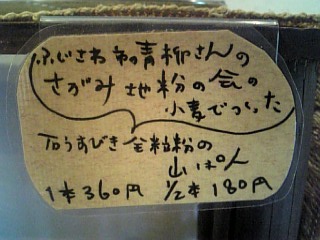 ふじさわ市の青柳さんの
さがみ地粉の会の
小麦でつくった
石うすびき全粒粉の
山ぱん
1本360円 1/2本180円